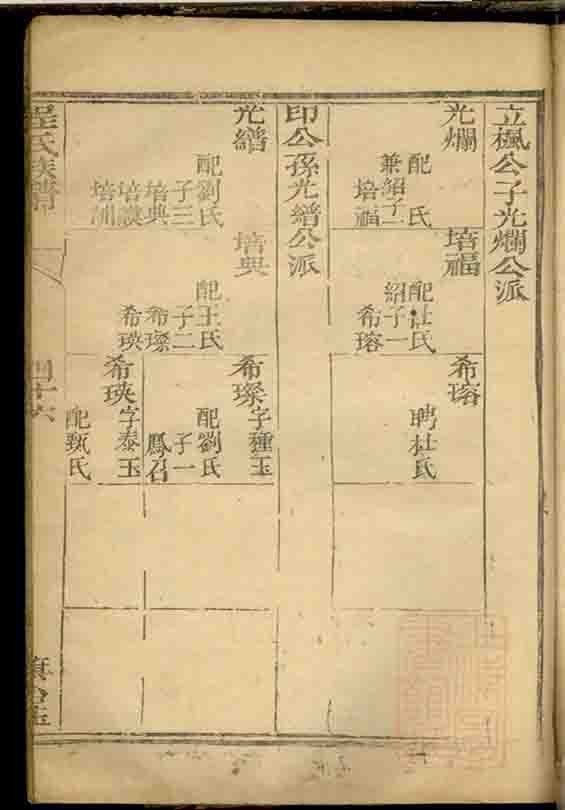 立楓公子光斓公派
光斓
配 氏
兼紹子一
培福
培福
配杜氏
紹子一
希瑢
希瑢
聘杜氏
印公孫光縉公派
光縉
配劉氏
子三
培典
培謨
培訓
培典
配王氏
子二
希璨
希瑛
希璨字種玉
配劉氏
子一
鳳召
希瑛字泰玉
配甄氏
程氏族譜
四十六